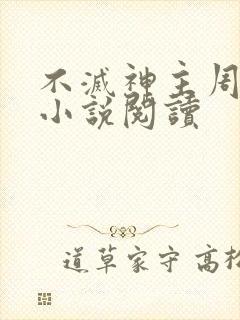 不滅神主周
小說閱讀
道草家守高松